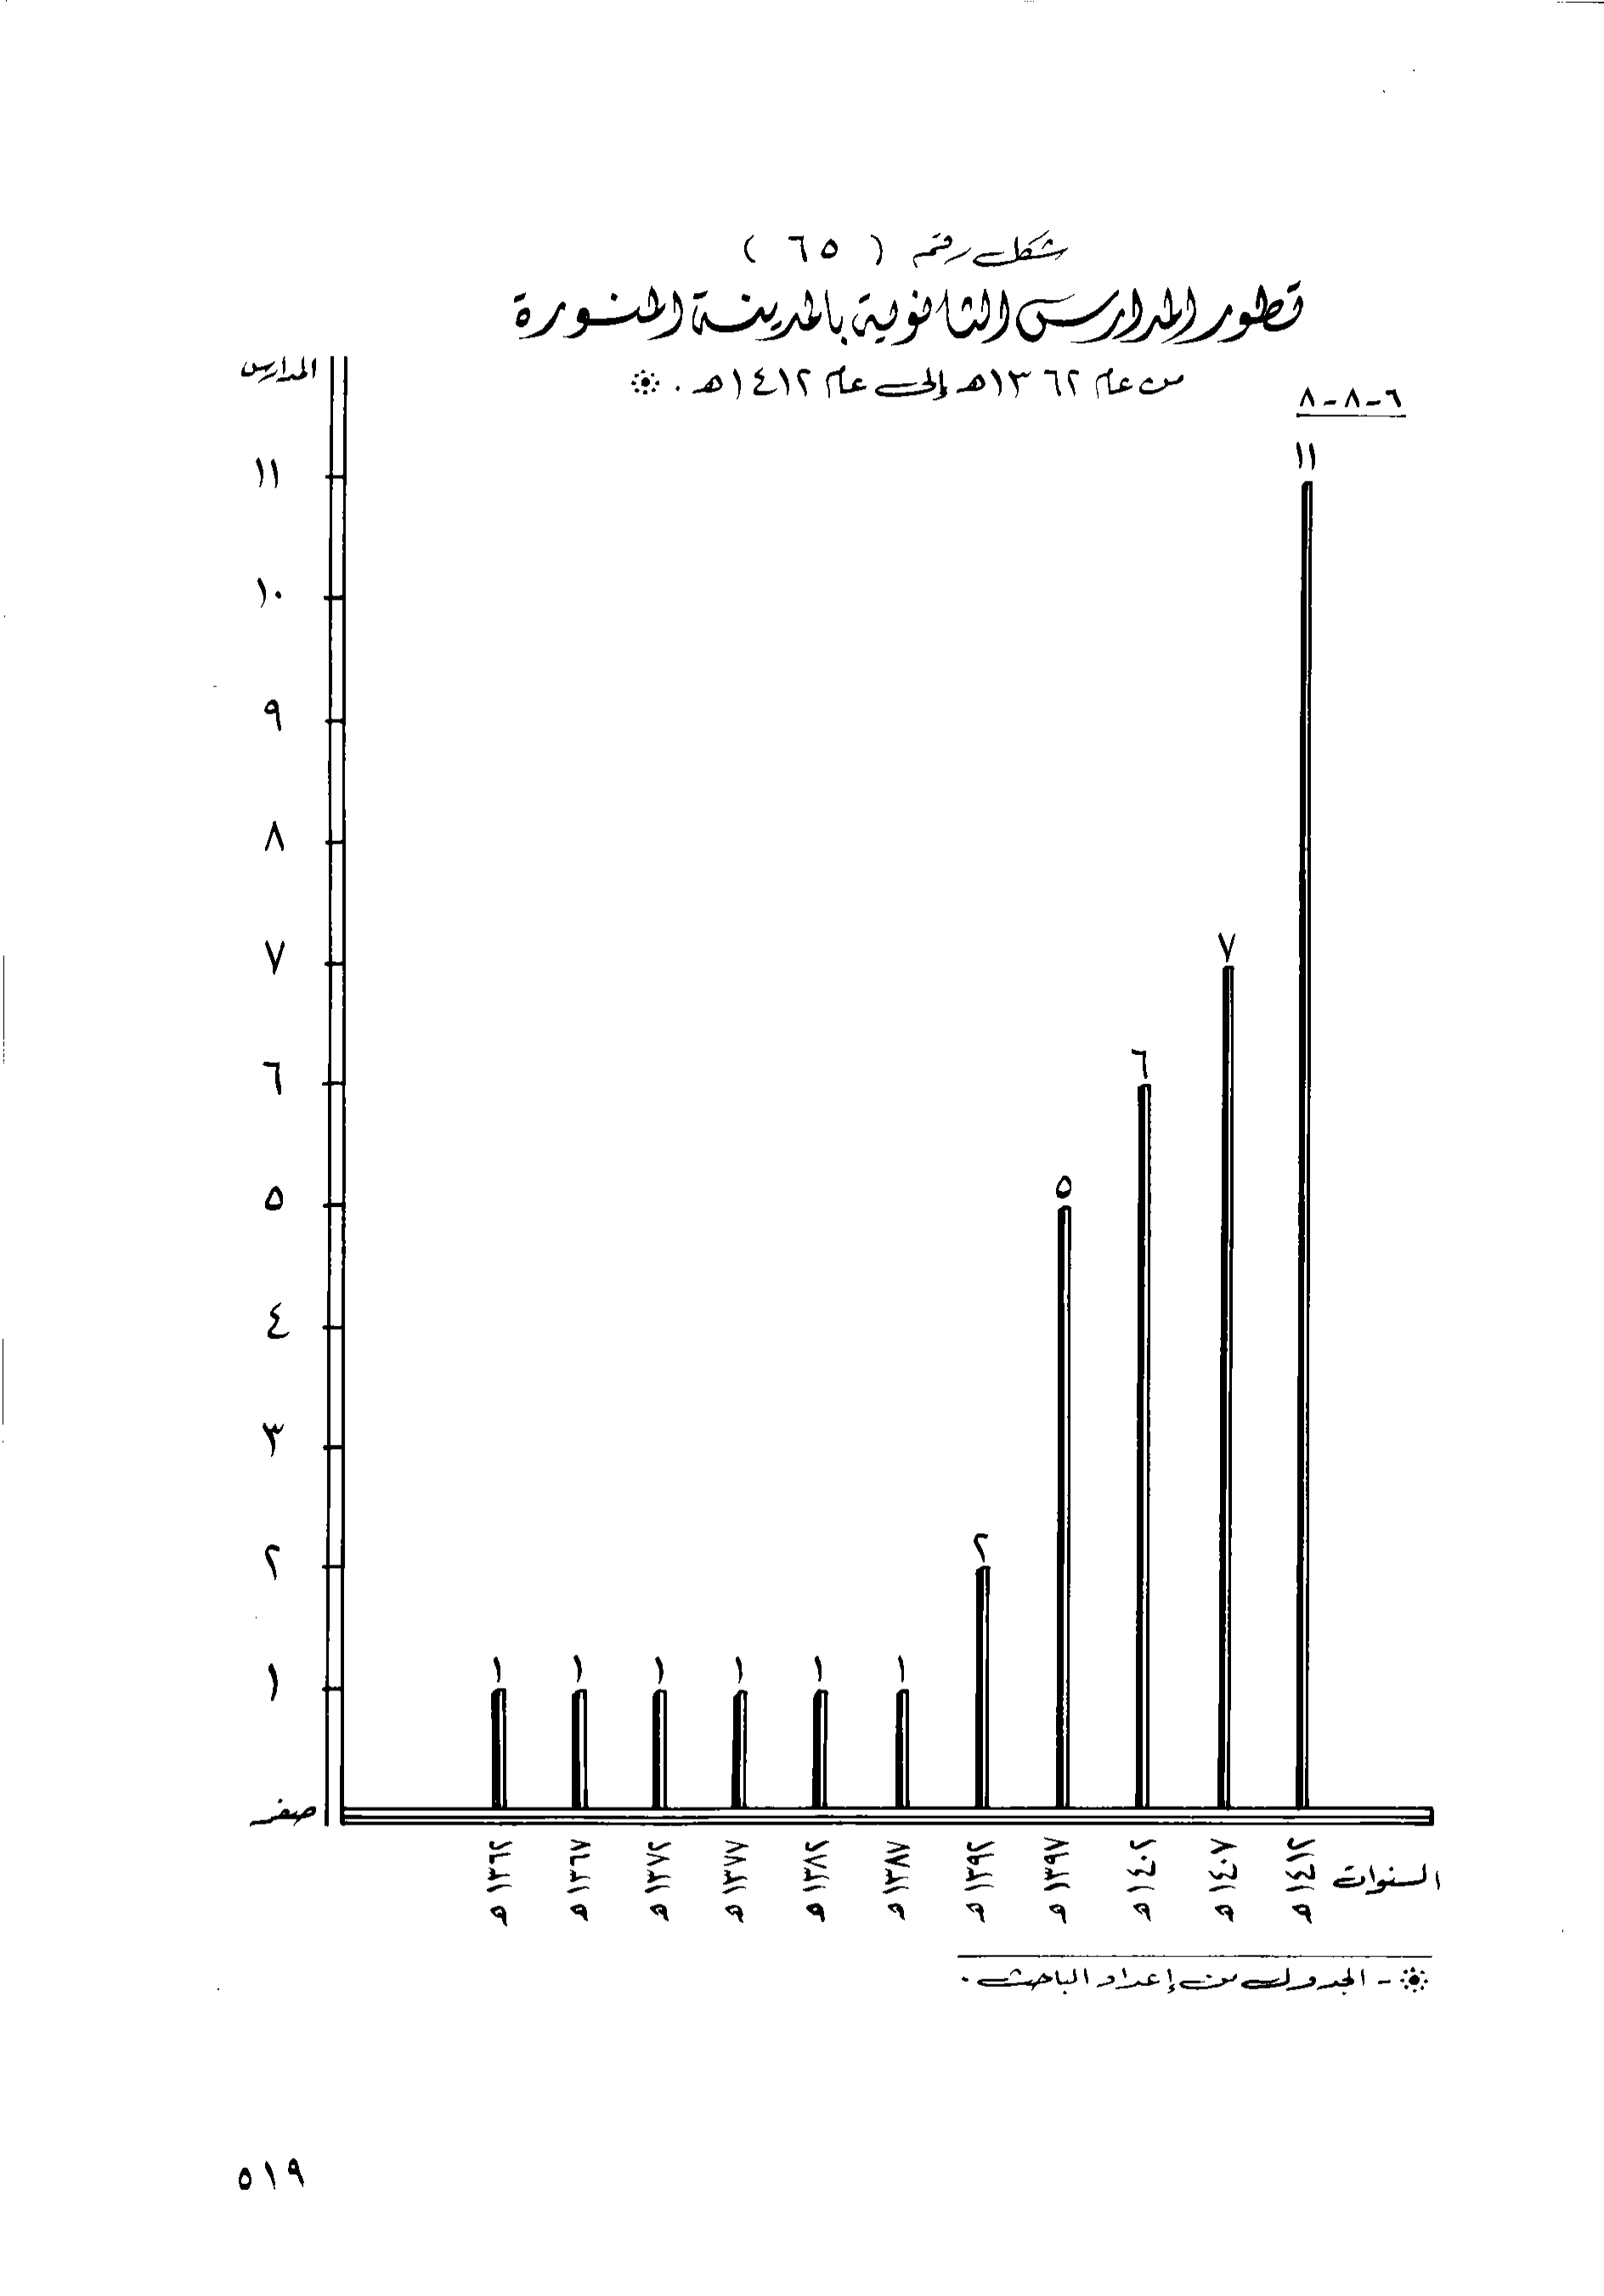 شكل رقم ( ٦٥ )
تطور المدارس الثانوية بالمدينة المنورة
من عام ١٣٦٢هـ إلى عام ١٤١٢هـ .
٦-٨-٨
المدارس
١١
١٠
٩
٨
٧
٦
٥
٤
٣
٢
١
صفر
١
١
١
١
١
١
٢
٥
٦
٧
١١
١٣٦٢ه
١٣٦٧ه
١٣٧٢ه
١٣٧٧ه
١٣٨٢ه
١٣٨٧ه
١٣٩٢ه
١٣٩٧ه
١٤٠٢ه
١٤٠٧ه
١٤١٢ه
السنوات
- الجدول من إعداد الباحث .
٥١٩